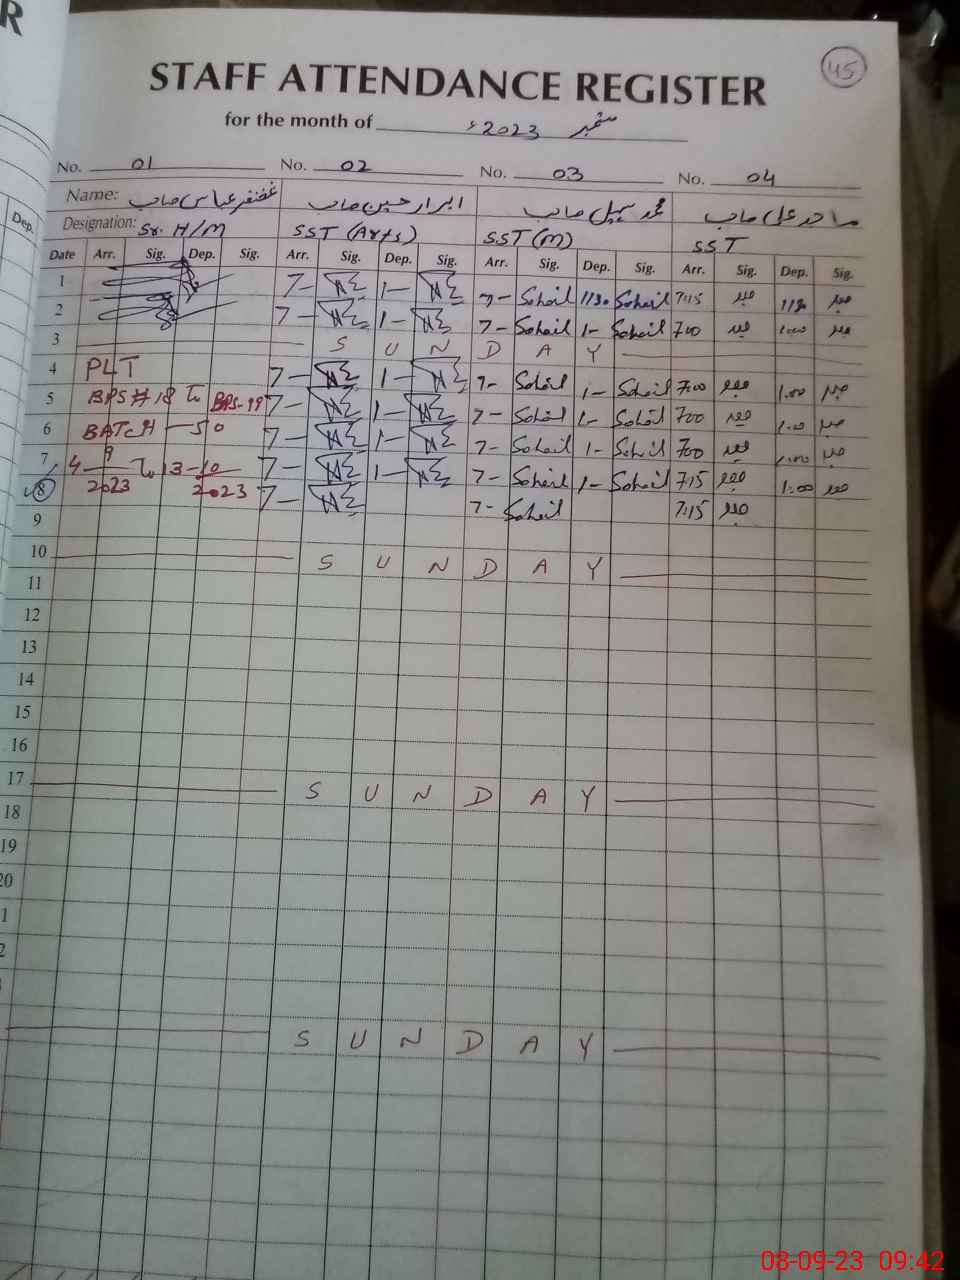 R
45
STAFF ATTENDANCE REGISTER
for the month of ستمبر 2023ء
No. 01 No. 02 No. 03 No. 04
Name: غضنفر عباس صاحب ابرار حسین صاحب محمد سہیل صاحب ساجد علی صاحب
Dep. Designation: Sr. H/M SST (Arts) SST (M) SST
Date Arr. Sig. Dep. Sig. Arr. Sig. Dep. Sig. Arr. Sig. Dep. Sig. Arr. Sig. Dep. Sig.
1 7- 1- 7- Sohail 1130 Sohail 7:15 1130
2 7- 1- 7- Sohail 1- Sohail 700 1:00
3 S U N D A Y
4 PLT 7- 1- 7- Sohail 1- Sohail 7:00 1:00
5 BPS # 18 To BPS-19 7- 1- 7- Sohail 1- Sohail 700 1:00
6 BATCH - 50 7- 1- 7- Sohail 1- Sohail 700 1:00
7 4-9-2023 To 13-10-2023 7- 1- 7- Sohail 1- Sohail 7:15 1:00
8 7- 7- Sohail 7:15
9
10 S U N D A Y
11
12
13
14
15
16
17 S U N D A Y
18
19
20
1
2
S U N D A Y
08-09-23 09:42